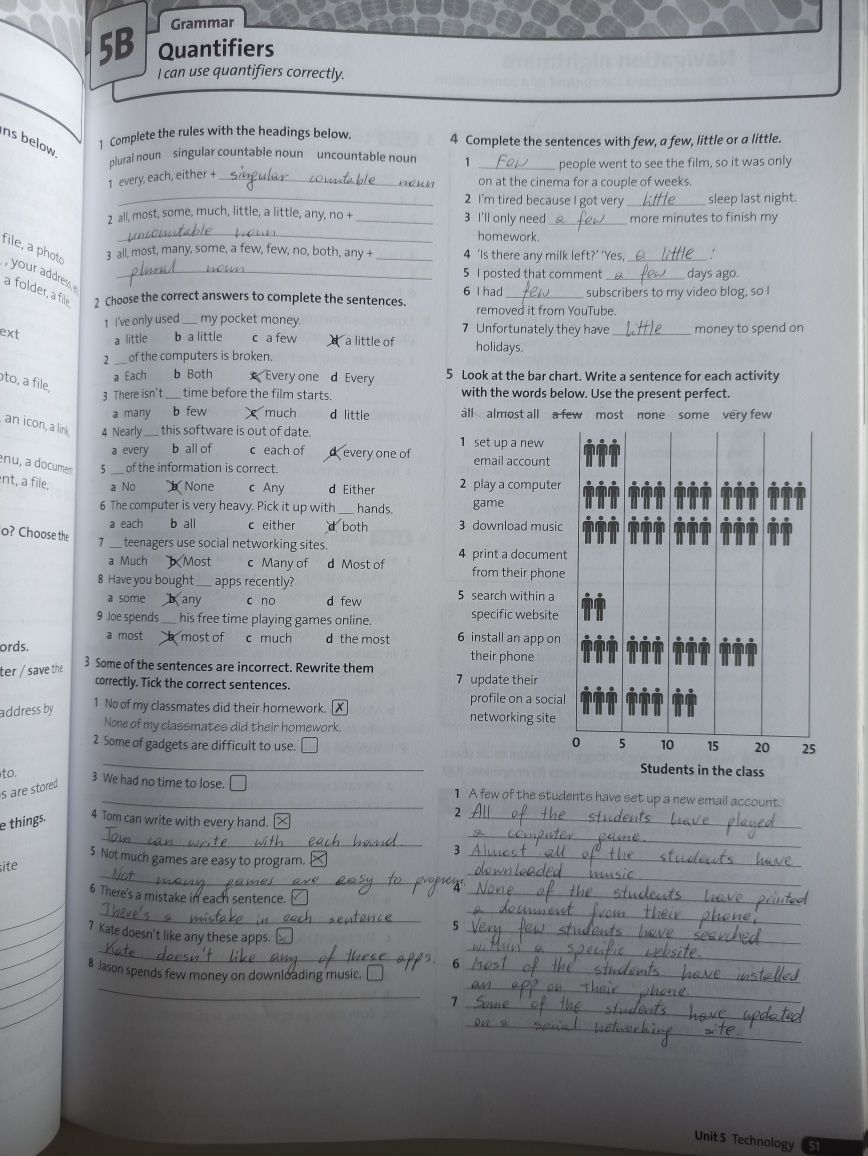 5B
Grammar
Quantifiers
I can use quantifiers correctly.
ns below.
file, a photo
, your address,
a folder, a file
ext
oto, a file,
an icon, a link
enu, a document
nt, a file,
o? Choose the
ords.
ter / save the
address by
to.
s are stored
e things.
site
1 Complete the rules with the headings below.
plural noun singular countable noun uncountable noun
1 every, each, either + singular countable noun
2 all, most, some, much, little, a little, any, no +
uncountable noun
3 all, most, many, some, a few, few, no, both, any +
plural noun
2 Choose the correct answers to complete the sentences.
1 I've only used ___ my pocket money.
a little b a little c a few d a little of
2 ___ of the computers is broken.
a Each b Both c Every one d Every
3 There isn't ___ time before the film starts.
a many b few c much d little
4 Nearly ___ this software is out of date.
a every b all of c each of d every one of
5 ___ of the information is correct.
a No b None c Any d Either
6 The computer is very heavy. Pick it up with ___ hands.
a each b all c either d both
7 ___ teenagers use social networking sites.
a Much b Most c Many of d Most of
8 Have you bought ___ apps recently?
a some b any c no d few
9 Joe spends ___ his free time playing games online.
a most b most of c much d the most
3 Some of the sentences are incorrect. Rewrite them
correctly. Tick the correct sentences.
1 No of my classmates did their homework. ✗
None of my classmates did their homework.
2 Some of gadgets are difficult to use.
3 We had no time to lose.
4 Tom can write with every hand. ✗
Tom can write with each hand.
5 Not much games are easy to program. ✗
Not many games are easy to program.
6 There's a mistake in each sentence. ✓
There's a mistake in each sentence
7 Kate doesn't like any these apps. ✗
Kate doesn't like any of these apps.
8 Jason spends few money on downloading music.
4 Complete the sentences with few, a few, little or a little.
1 Few people went to see the film, so it was only
on at the cinema for a couple of weeks.
2 I'm tired because I got very little sleep last night.
3 I'll only need a few more minutes to finish my
homework.
4 'Is there any milk left?' 'Yes, a little.'
5 I posted that comment a few days ago.
6 I had few subscribers to my video blog, so I
removed it from YouTube.
7 Unfortunately they have little money to spend on
holidays.
5 Look at the bar chart. Write a sentence for each activity
with the words below. Use the present perfect.
all almost all a few most none some very few
1 set up a new
email account
2 play a computer
game
3 download music
4 print a document
from their phone
5 search within a
specific website
6 install an app on
their phone
7 update their
profile on a social
networking site
0 5 10 15 20 25
Students in the class
1 A few of the students have set up a new email account.
2 All of the students have played
a computer game.
3 Almost all of the students have
downloaded music
4 None of the students have printed
a document from their phone.
5 Very few students have searched
within a specific website.
6 Most of the students have installed
an app on their phone.
7 Some of the students have updated
on a social networking site.
Unit 5 Technology 51